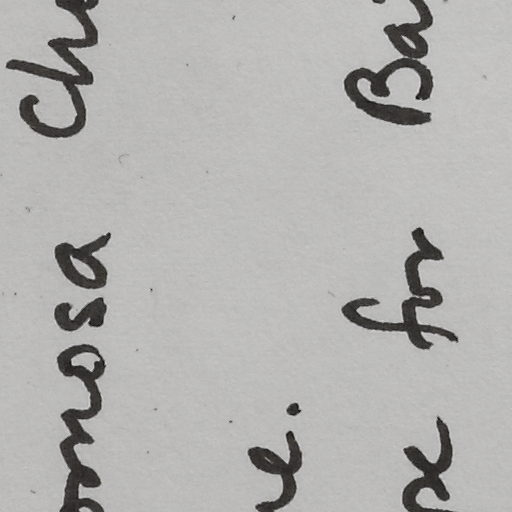 rmosa Che
e.
pe for Ba